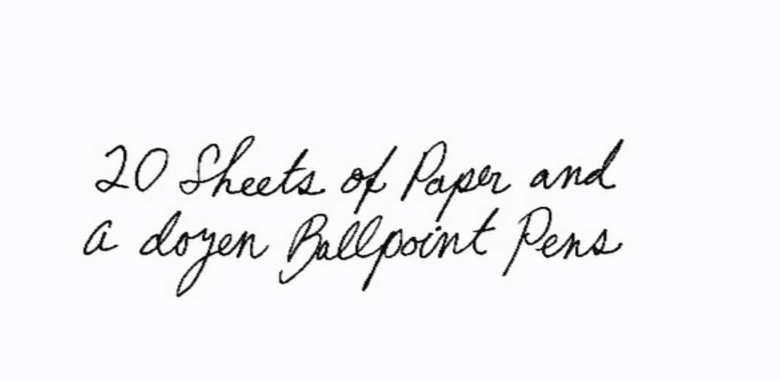 20 Sheets of Paper and
a dozen Ballpoint Pens